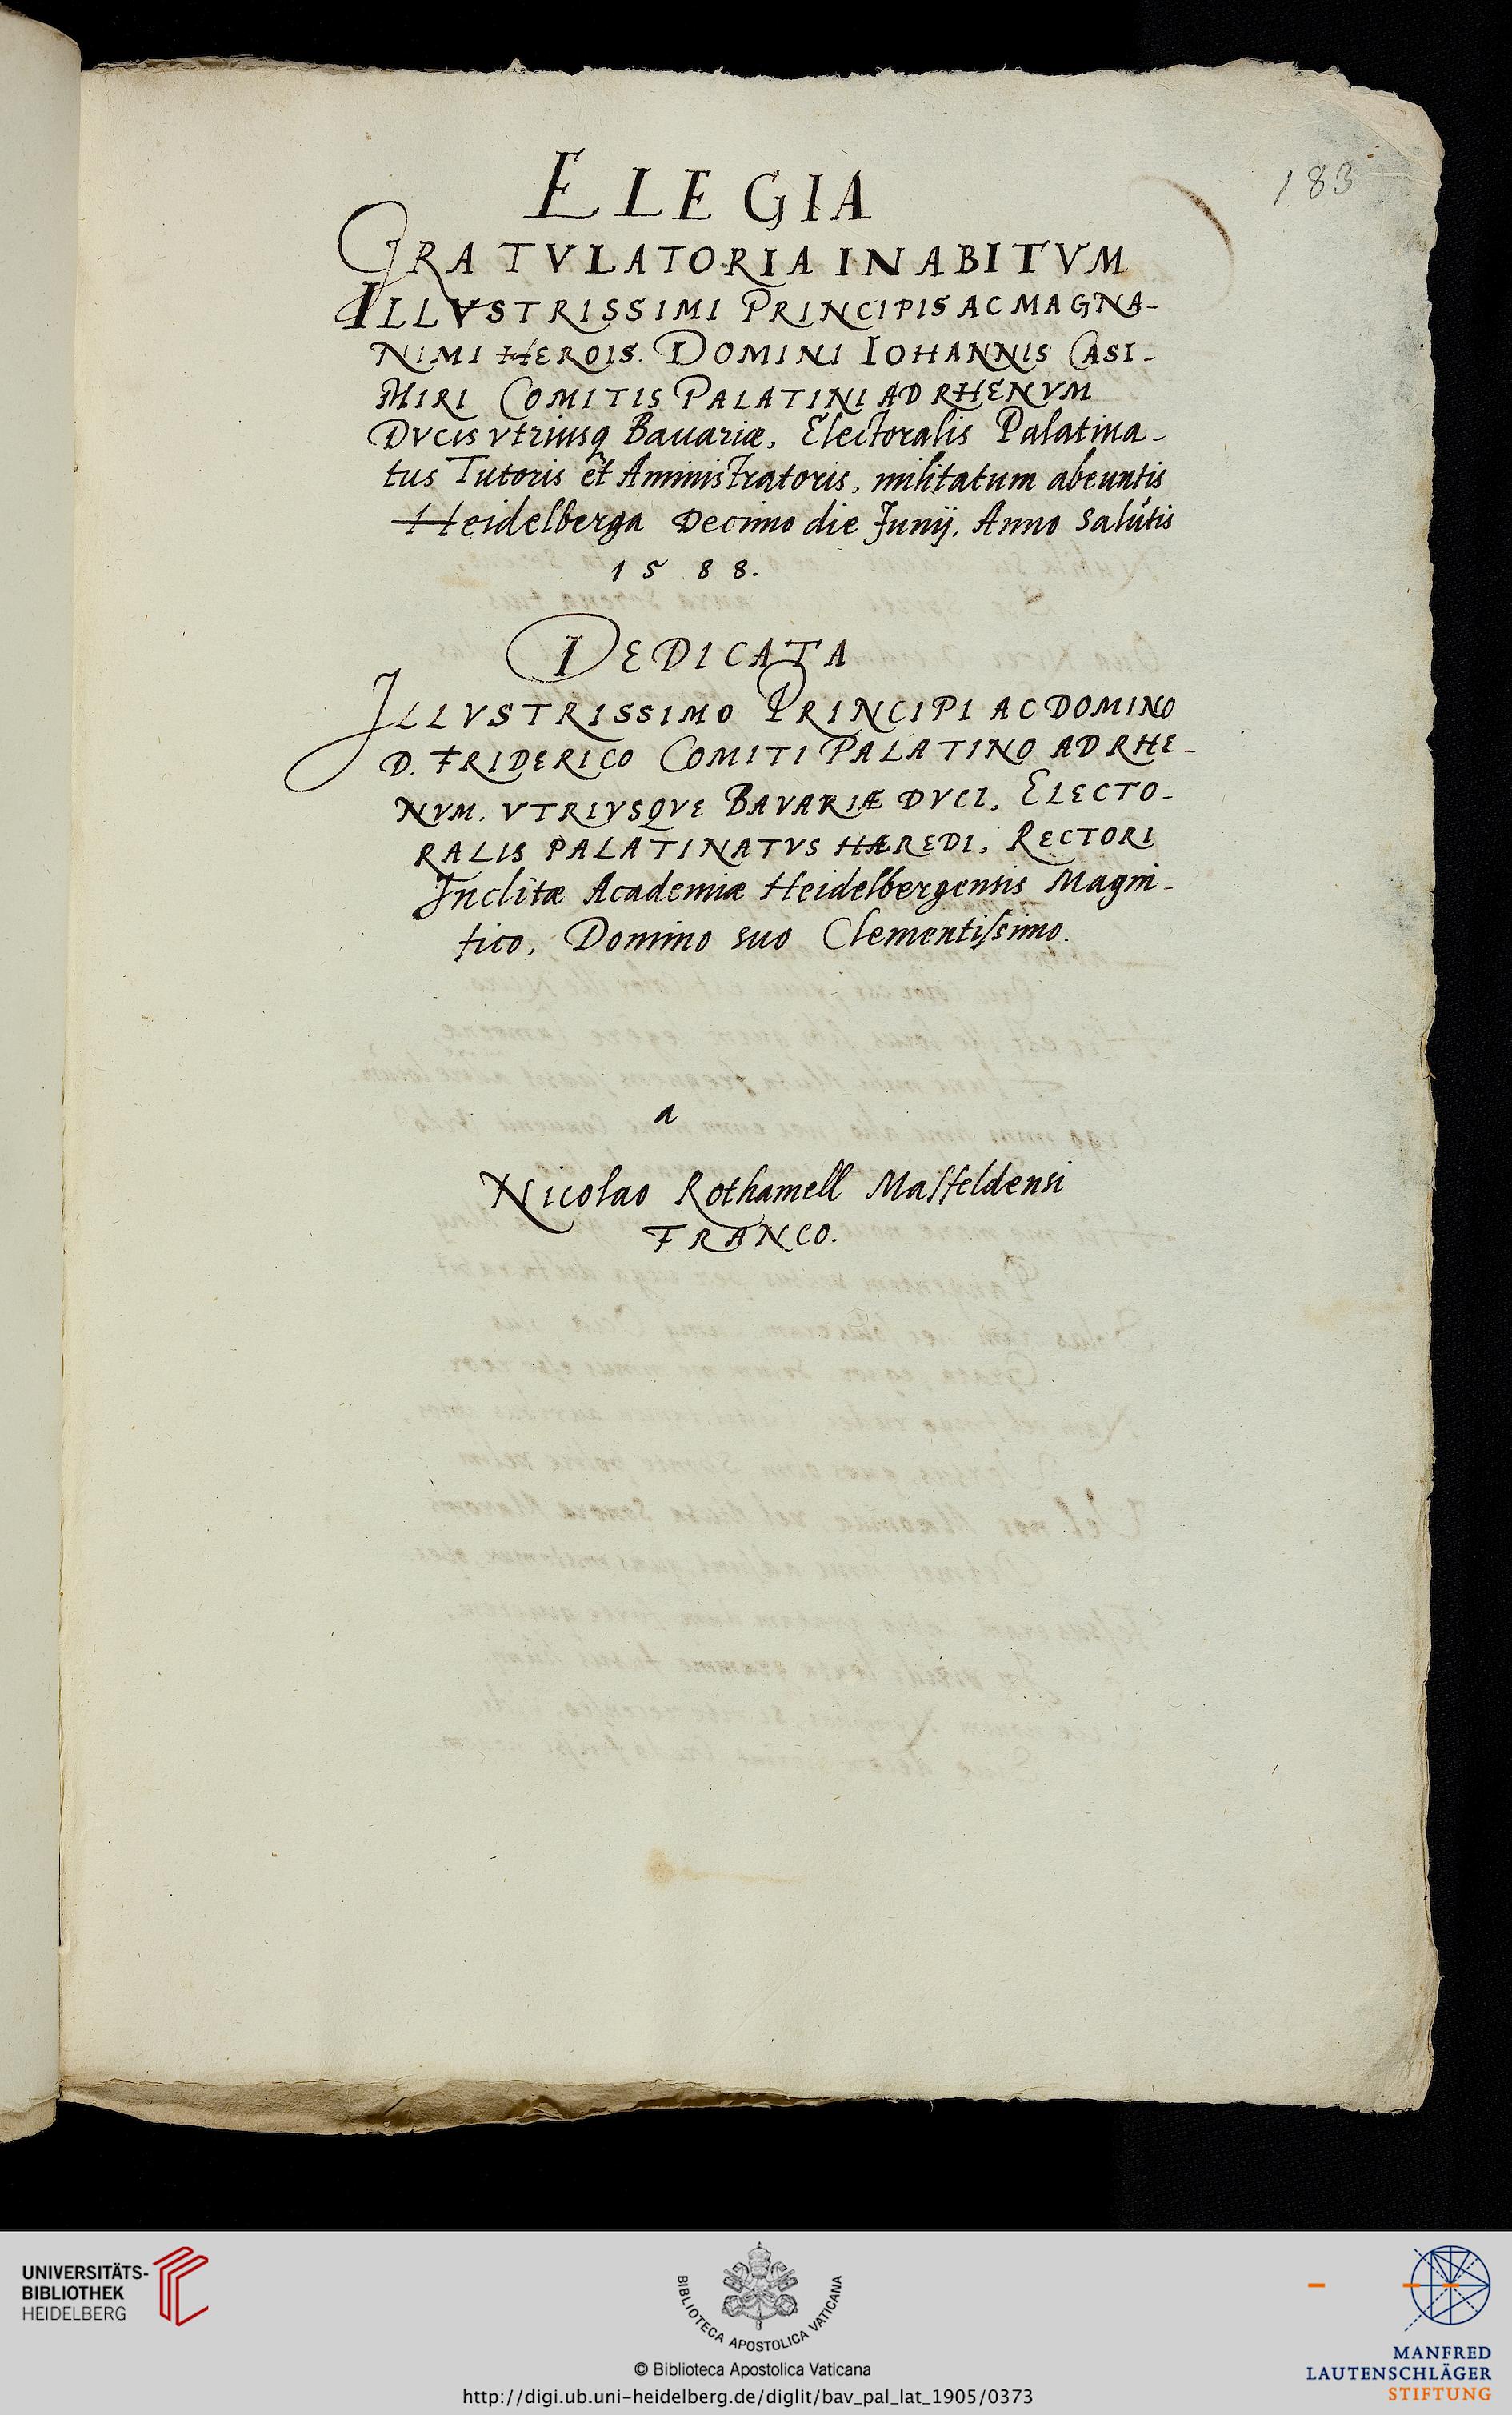 183
ELEGIA
GRATVLATORIA IN ABITVM
ILLVSTRISSIMI PRINCIPIS AC MAGNA-
NIMI HEROIS. DOMINI IOHANNIS CASI-
MIRI COMITIS PALATINI AD RHENVM
DVCIS vtriusq Bauariæ, Electoralis Palatina-
tus Tutoris et Aministratoris, militatum abeuntis
Heidelberga Decimo die Junij. Anno Salutis
1588.
DEDICATA
ILLVSTRISSIMO PRINCIPI AC DOMINO
D. FRIDERICO COMITI PALATINO AD RHE-
NVM. VTRIVSQVE BAVARIÆ DVCI, ELECTO-
RALIS PALATINATVS HÆREDI, RECTORI
Inclitæ Academiæ Heidelbergensis Magni-
fico, Domino suo Clementissimo.
a
Nicolao Rothamell Masfeldensi
FRANCO.
UNIVERSITÄTS-
BIBLIOTHEK
HEIDELBERG
BIBLIOTECA APOSTOLICA VATICANA
© Biblioteca Apostolica Vaticana
http://digi.ub.uni-heidelberg.de/diglit/bav_pal_lat_1905/0373
MANFRED
LAUTENSCHLÄGER
STIFTUNG